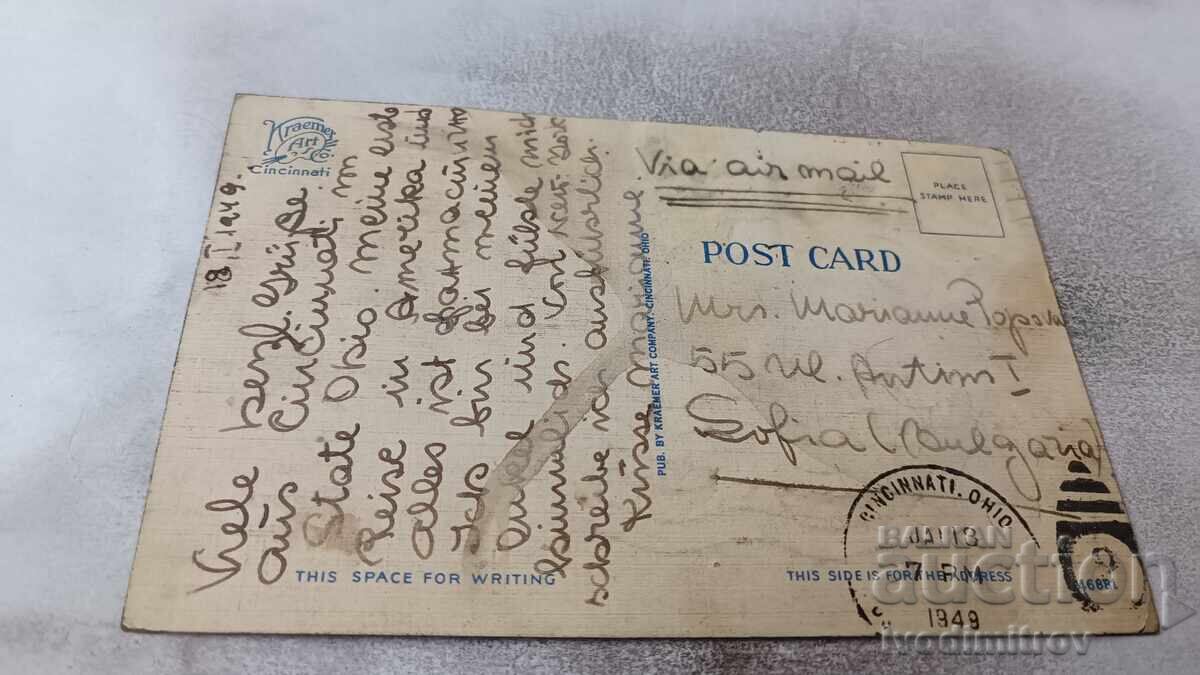 Kraemer
Art
Co.
Cincinnati
18 I 1949.
Viele herzl. Grüße
aus Cincinnati, im
State Ohio, meine erste
Reise in Amerika und
alles ist
Ich bin bei meinem
Onkel und fühle mich
schreibe ich ausführlich.
Küsse Marianne
PUB. BY KRAEMER ART COMPANY, CINCINNATI, OHIO
THIS SPACE FOR WRITING
Via air mail
PLACE
STAMP HERE
POST CARD
Mrs. Marianne
55 ul. Antim I
Sofia (Bulgaria)
CINCINNATI, OHIO
JAN 18
7 PM
1949
THIS SIDE IS FOR THE ADDRESS
BALKAN
auction
ivodimitrov